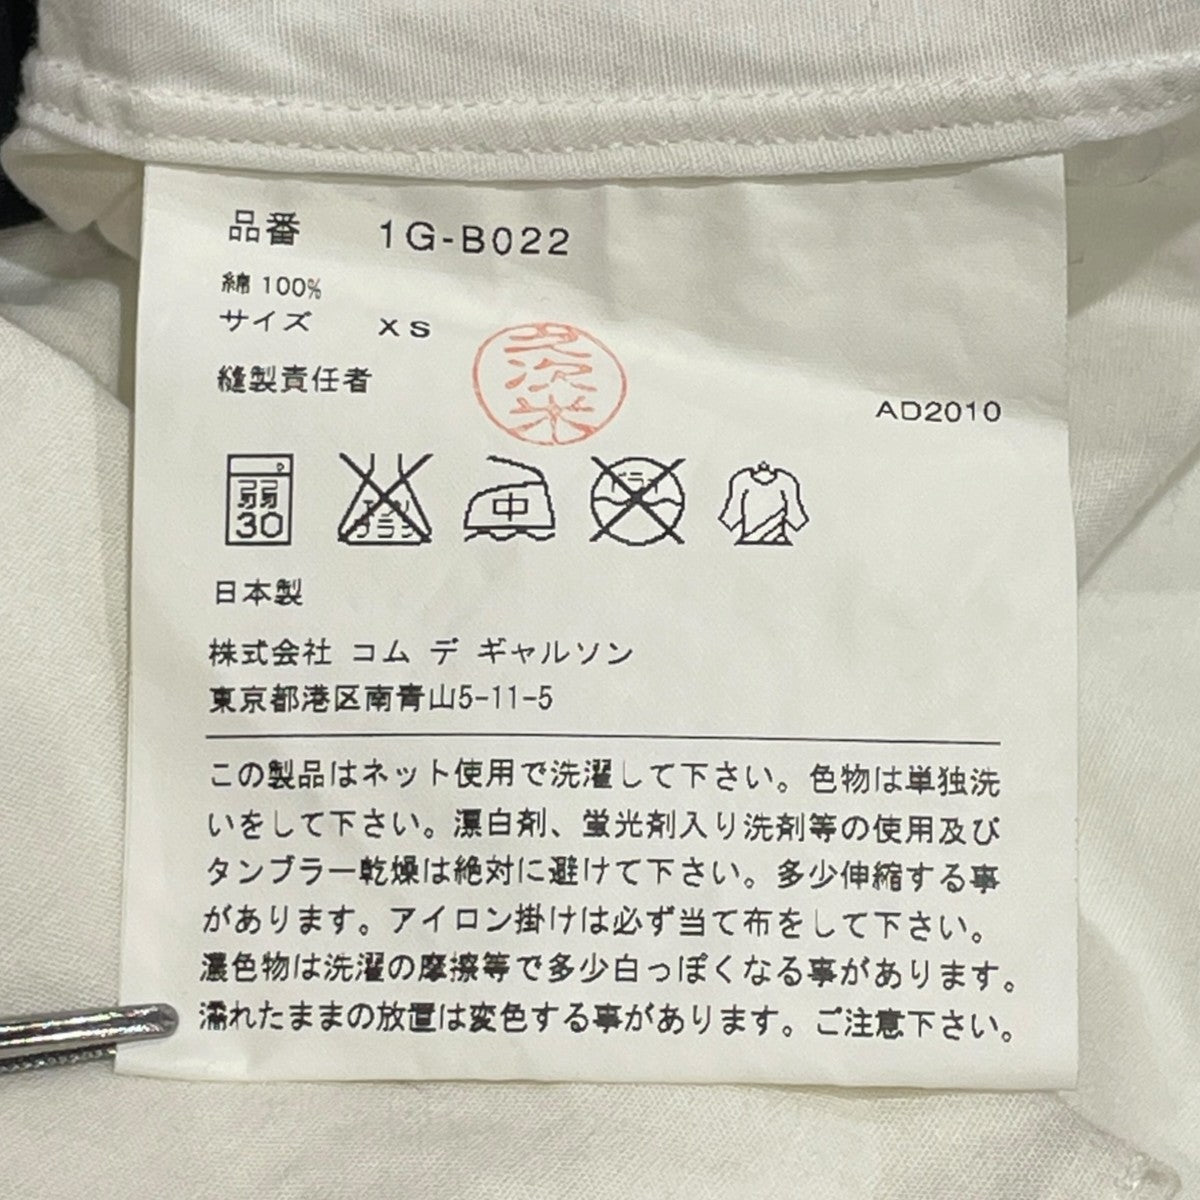 品番 1G-B022
綿 100%
サイズ XS
縫製責任者
久次米
AD2010
弱 30
エンソ サラシ
中
ドライ
日本製
株式会社 コム デ ギャルソン
東京都港区南青山5-11-5
この製品はネット使用で洗濯して下さい。色物は単独洗
いをして下さい。漂白剤、蛍光剤入り洗剤等の使用及び
タンブラー乾燥は絶対に避けて下さい。多少伸縮する事
があります。アイロン掛けは必ず当て布をして下さい。
濃色物は洗濯の摩擦等で多少白っぽくなる事があります。
濡れたままの放置は変色する事があります。ご注意下さい。